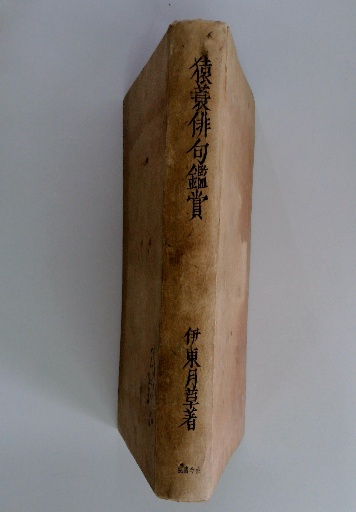 猿蓑俳句鑑賞
伊東月草著